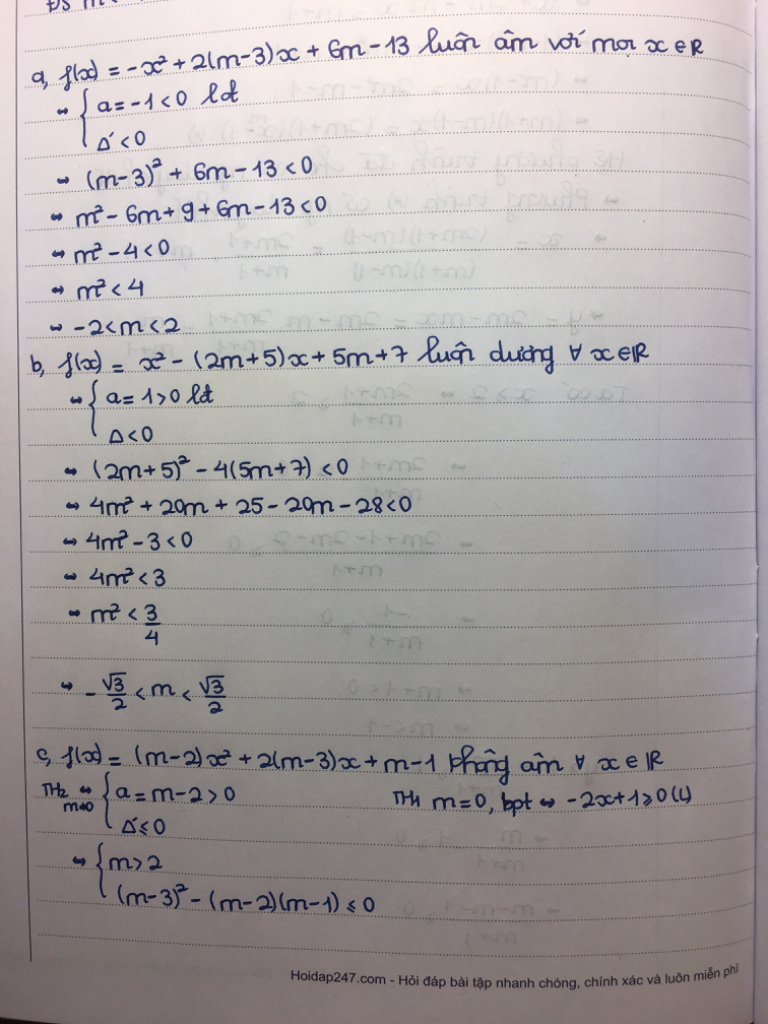 ĐS m
a, f(x) = -x² + 2(m-3)x + 6m - 13 luôn âm với mọi x ∈ R
⇔ { a = -1 < 0 lđ
Δ' < 0
⇔ (m-3)² + 6m - 13 < 0
⇔ m² - 6m + 9 + 6m - 13 < 0
⇔ m² - 4 < 0
⇔ m² < 4
⇔ -2 < m < 2
b, f(x) = x² - (2m+5)x + 5m + 7 luôn dương ∀ x ∈ R
⇔ { a = 1 > 0 lđ
Δ < 0
⇔ (2m+5)² - 4(5m+7) < 0
⇔ 4m² + 20m + 25 - 20m - 28 < 0
⇔ 4m² - 3 < 0
⇔ 4m² < 3
⇔ m² < 3/4
⇔ -√3/2 < m < √3/2
c, f(x) = (m-2)x² + 2(m-3)x + m - 1 không âm ∀ x ∈ R
TH2 m≠0 ⇔ { a = m - 2 > 0 TH1 m = 0, bpt ⇔ -2x + 1 ≥ 0 (L)
Δ' ≤ 0
⇔ { m > 2
(m-3)² - (m-2)(m-1) ≤ 0
Hoidap247.com - Hỏi đáp bài tập nhanh chóng, chính xác và luôn miễn phí